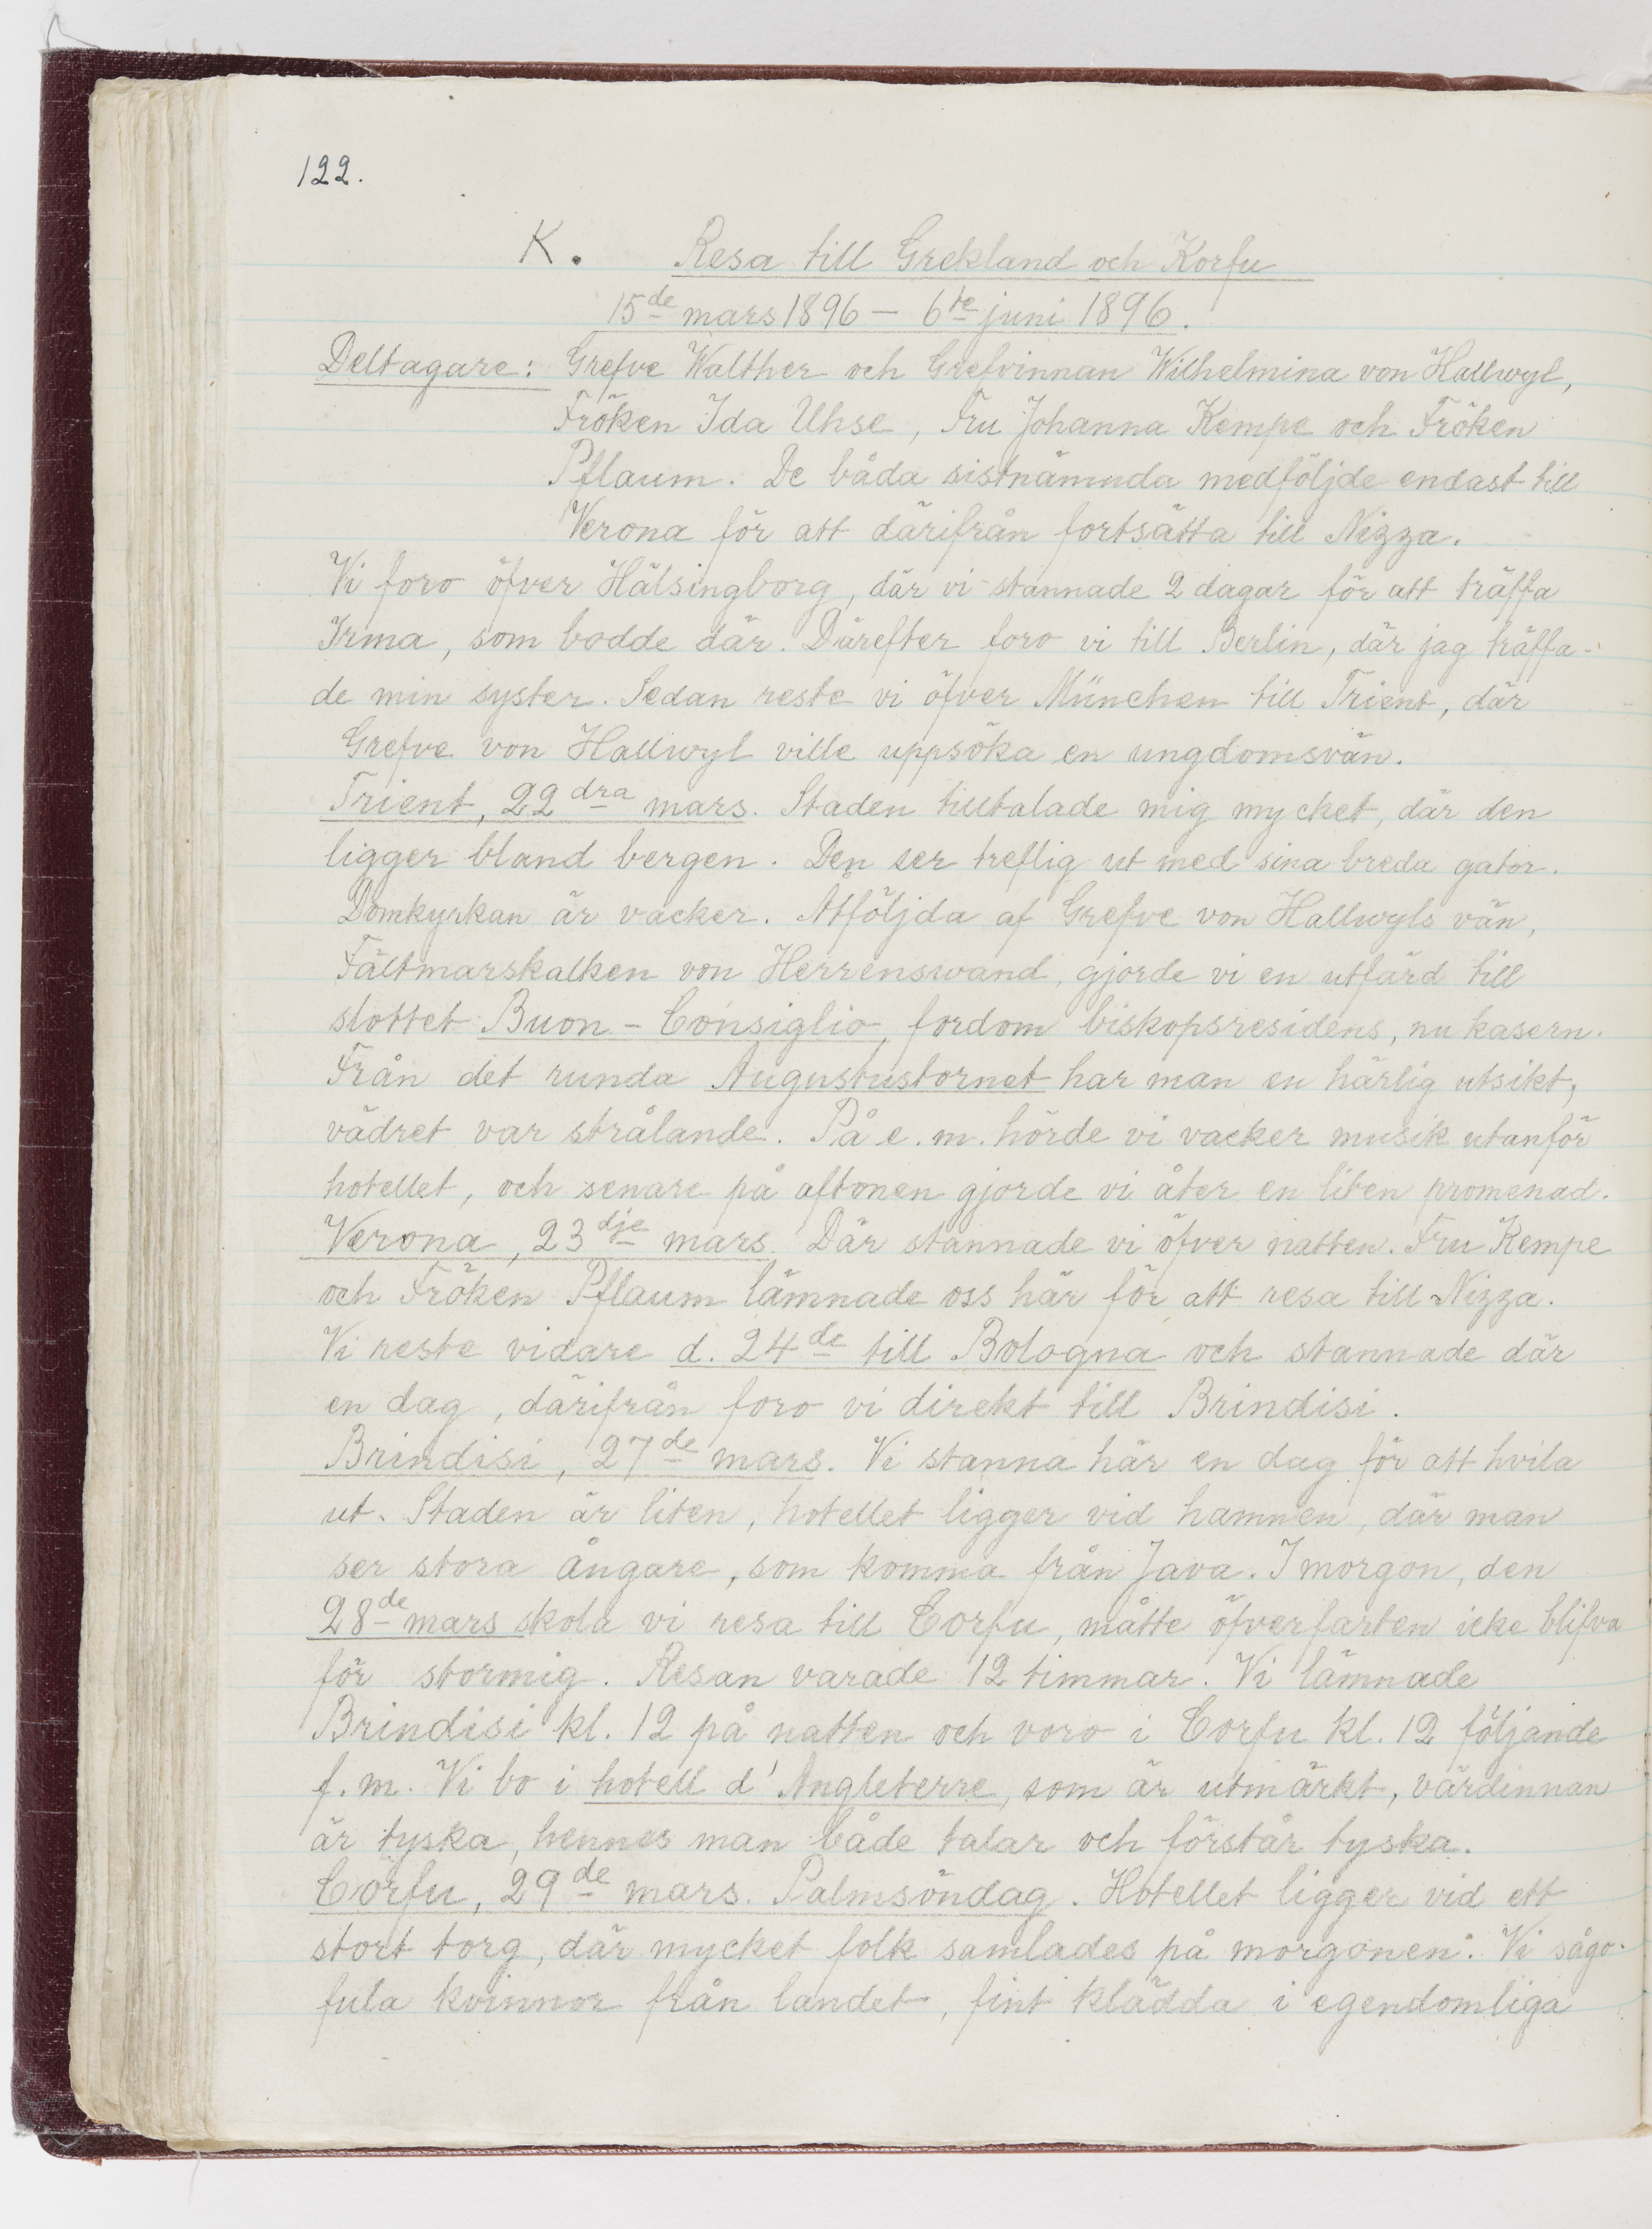 122.
K. Resa till Grekland och Korfu
15de mars 1896 – 6te juni 1896.
Deltagare: Grefve Walther och Grefvinnan Wilhelmina von Hallwyl,
Fröken Ida Uhse, Fru Johanna Kempe och Fröken
Pflaum. De båda sistnämnda medföljde endast till
Verona för att därifrån fortsätta till Nizza.
Vi foro öfver Hälsingborg, där vi stannade 2 dagar för att träffa
Irma, som bodde där. Därefter foro vi till Berlin, där jag träffa-
de min syster. Sedan reste vi öfver München till Trient, där
Grefve von Hallwyl ville uppsöka en ungdomsvän.
Trient, 22dra mars. Staden tilltalade mig mycket, där den
ligger bland bergen. Den ser treflig ut med sina breda gator.
Domkyrkan är vacker. Åtföljda af Grefve von Hallwyls vän,
Fältmarskalken von Herrenswand, gjorde vi en utfärd till
slottet Buon-Consiglio, fordom biskopsresidens, nu kasern.
Från det runda Augustustornet har man en härlig utsikt,
vädret var strålande. På e.m. hörde vi vacker musik utanför
hotellet, och senare på aftonen gjorde vi åter en liten promenad.
Verona, 23dje mars. Där stannade vi öfver natten. Fru Kempe
och Fröken Pflaum lämnade oss här för att resa till Nizza.
Vi reste vidare d. 24de till Bologna och stannade där
en dag, därifrån foro vi direkt till Brindisi.
Brindisi, 27de mars. Vi stanna här en dag för att hvila
ut. Staden är liten, hotellet ligger vid hamnen, där man
ser stora ångare, som komma från Java. I morgon, den
28de mars skola vi resa till Corfu, måtte öfverfarten icke blifva
för stormig. Resan varade 12 timmar. Vi lämnade
Brindisi kl. 12 på natten och voro i Corfu kl. 12 följande
f.m. Vi bo i hotell d'Angleterre, som är utmärkt, värdinnan
är tyska, hennes man både talar och förstår tyska.
Corfu, 29de mars. Palmsöndag. Hotellet ligger vid ett
stort torg, där mycket folk samlades på morgonen. Vi sågo
fula kvinnor från landet, fint klädda i egendomliga